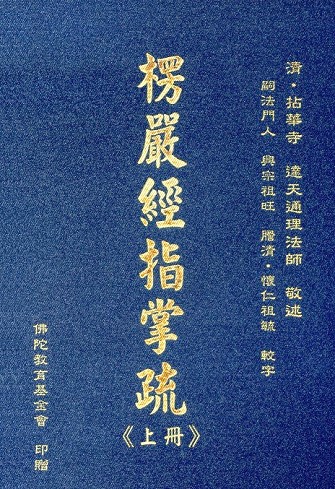 清・拈華寺 達天通理法師 敬述
嗣法門人 興宗祖旺 謄清・懷仁祖毓 較字
楞嚴經指掌疏
《上冊》
佛陀教育基金會 印贈